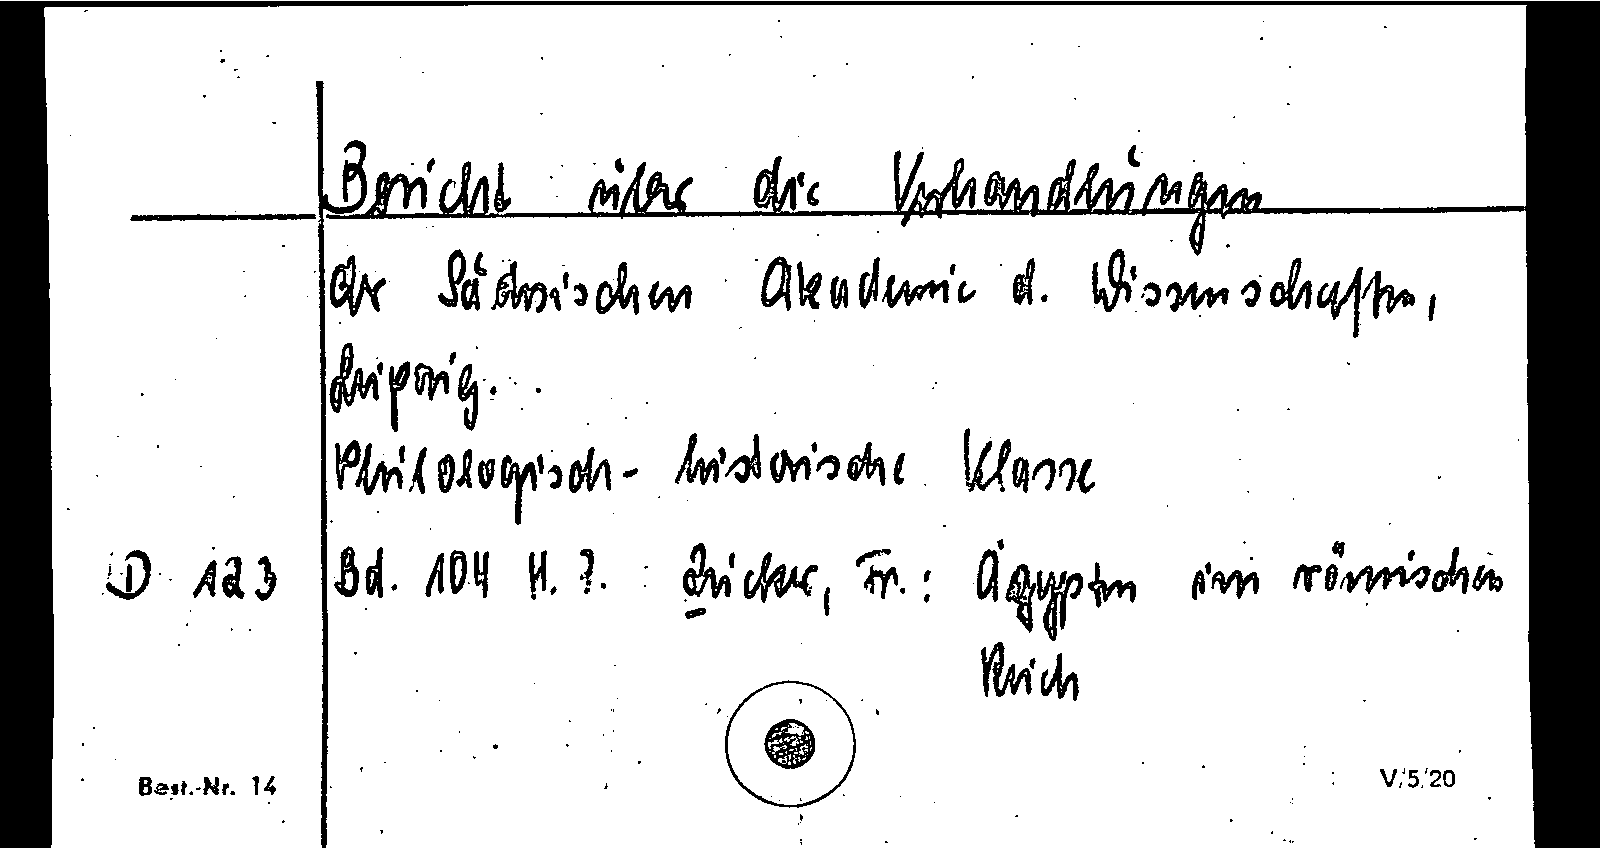 Bericht über die Verhandlungen
der Sächsischen Akademie d. Wissenschaften,
Leipzig.
Philologisch-historische Klasse
D 123 Bd. 104 H. 7. Zucker, Fr.: Ägypten im römischen
Reich
Best.-Nr. 14 V/5/20